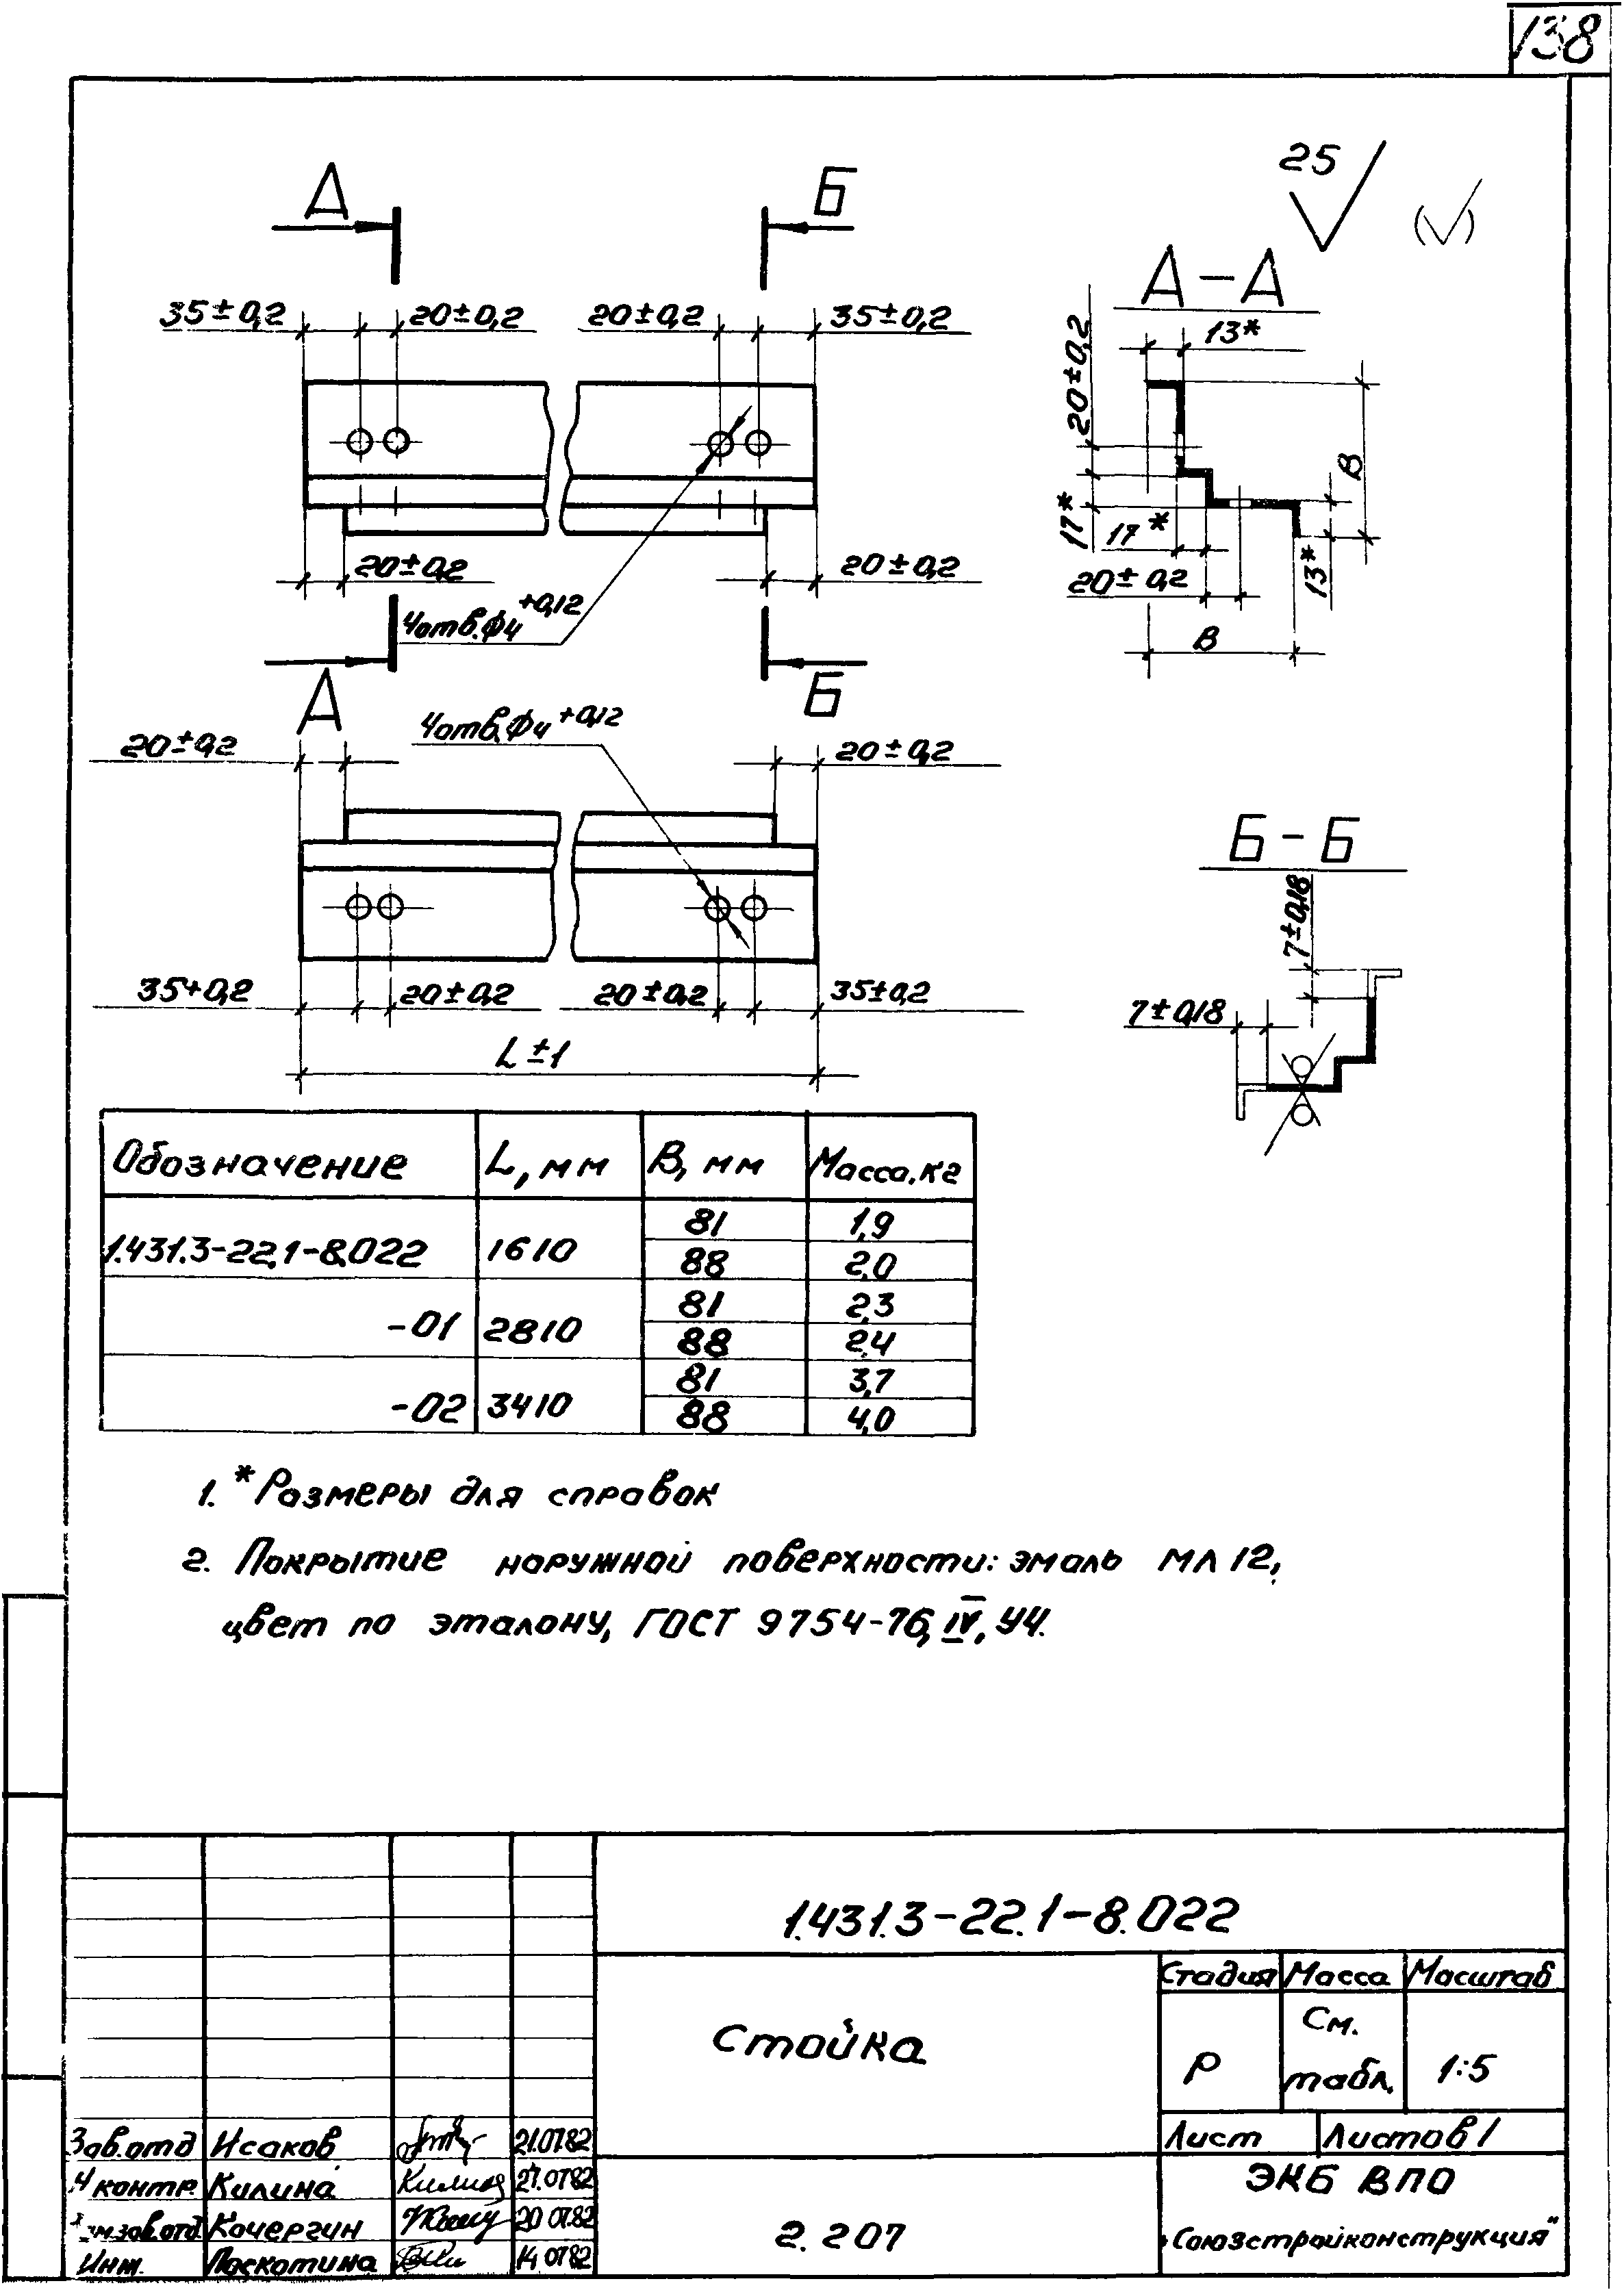 138
А Б
25
А-А
35±0,2 20±0,2 20±0,2 35±0,2
13*
20±0,2
В
17*
17*
20±0,2 20±0,2
20±0,2
13*
4отв.ф4 +0,12
В
А Б
4отв.ф4 +0,12
20±0,2 20±0,2
Б-Б
7±0,18
35+0,2 20±0,2 20±0,2 35±0,2
7±0,18
L±1
Обозначение L, мм В, мм Масса, кг
1.431.3-22.1-8.022 1610 81 1,9
88 2,0
-01 2810 81 2,3
88 2,4
-02 3410 81 3,7
88 4,0
1. *Размеры для справок
2. Покрытие наружной поверхности: эмаль МЛ 12,
цвет по эталону, ГОСТ 9754-76, IV, У4.
1.431.3-22.1-8.022
Стойка
Стадия Масса Масштаб
Р См. табл. 1:5
Лист Листов 1
Зав.отд Исаков 21.07.82
Н контр. Килина Килина 21.07.82
зам.зав.отд. Кочергин 20.07.82
Инж. Лоскотина 14.07.82
2.207
ЭКБ ВПО
„Союзстройконструкция"